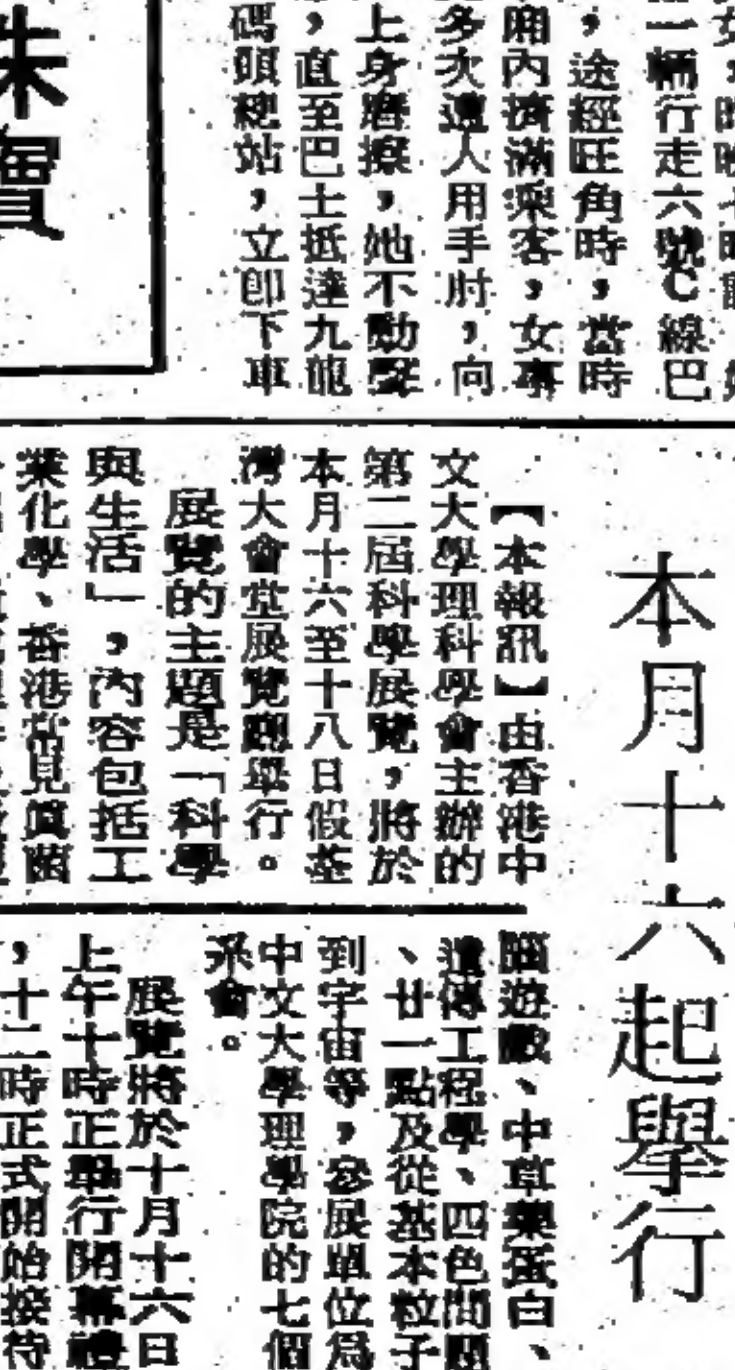 一輛行走六號C線巴
，途經旺角時，當時
廂內擠滿乘客，女事
多次遭人用手肘，向
上身磨擦，她不動聲
，直至巴士抵達九龍
碼頭總站，立即下車
珠寶
本月十六起舉行
【本報訊】由香港中
文大學理科學會主辦的
第二屆科學展覽，將於
本月十六至十八日假荃
灣大會堂展覽廳舉行。
展覽的主題是「科學
與生活」，內容包括工
業化學、香港常見真菌
腦遊戲、中草藥蛋白、
遺傳工程學、四色問題
、廿一點及從基本粒子
到宇宙等，參展單位為
中文大學理學院的七個
系會。
展覽將於十月十六日
上午十時正舉行開幕禮
，十二時正式開始接待